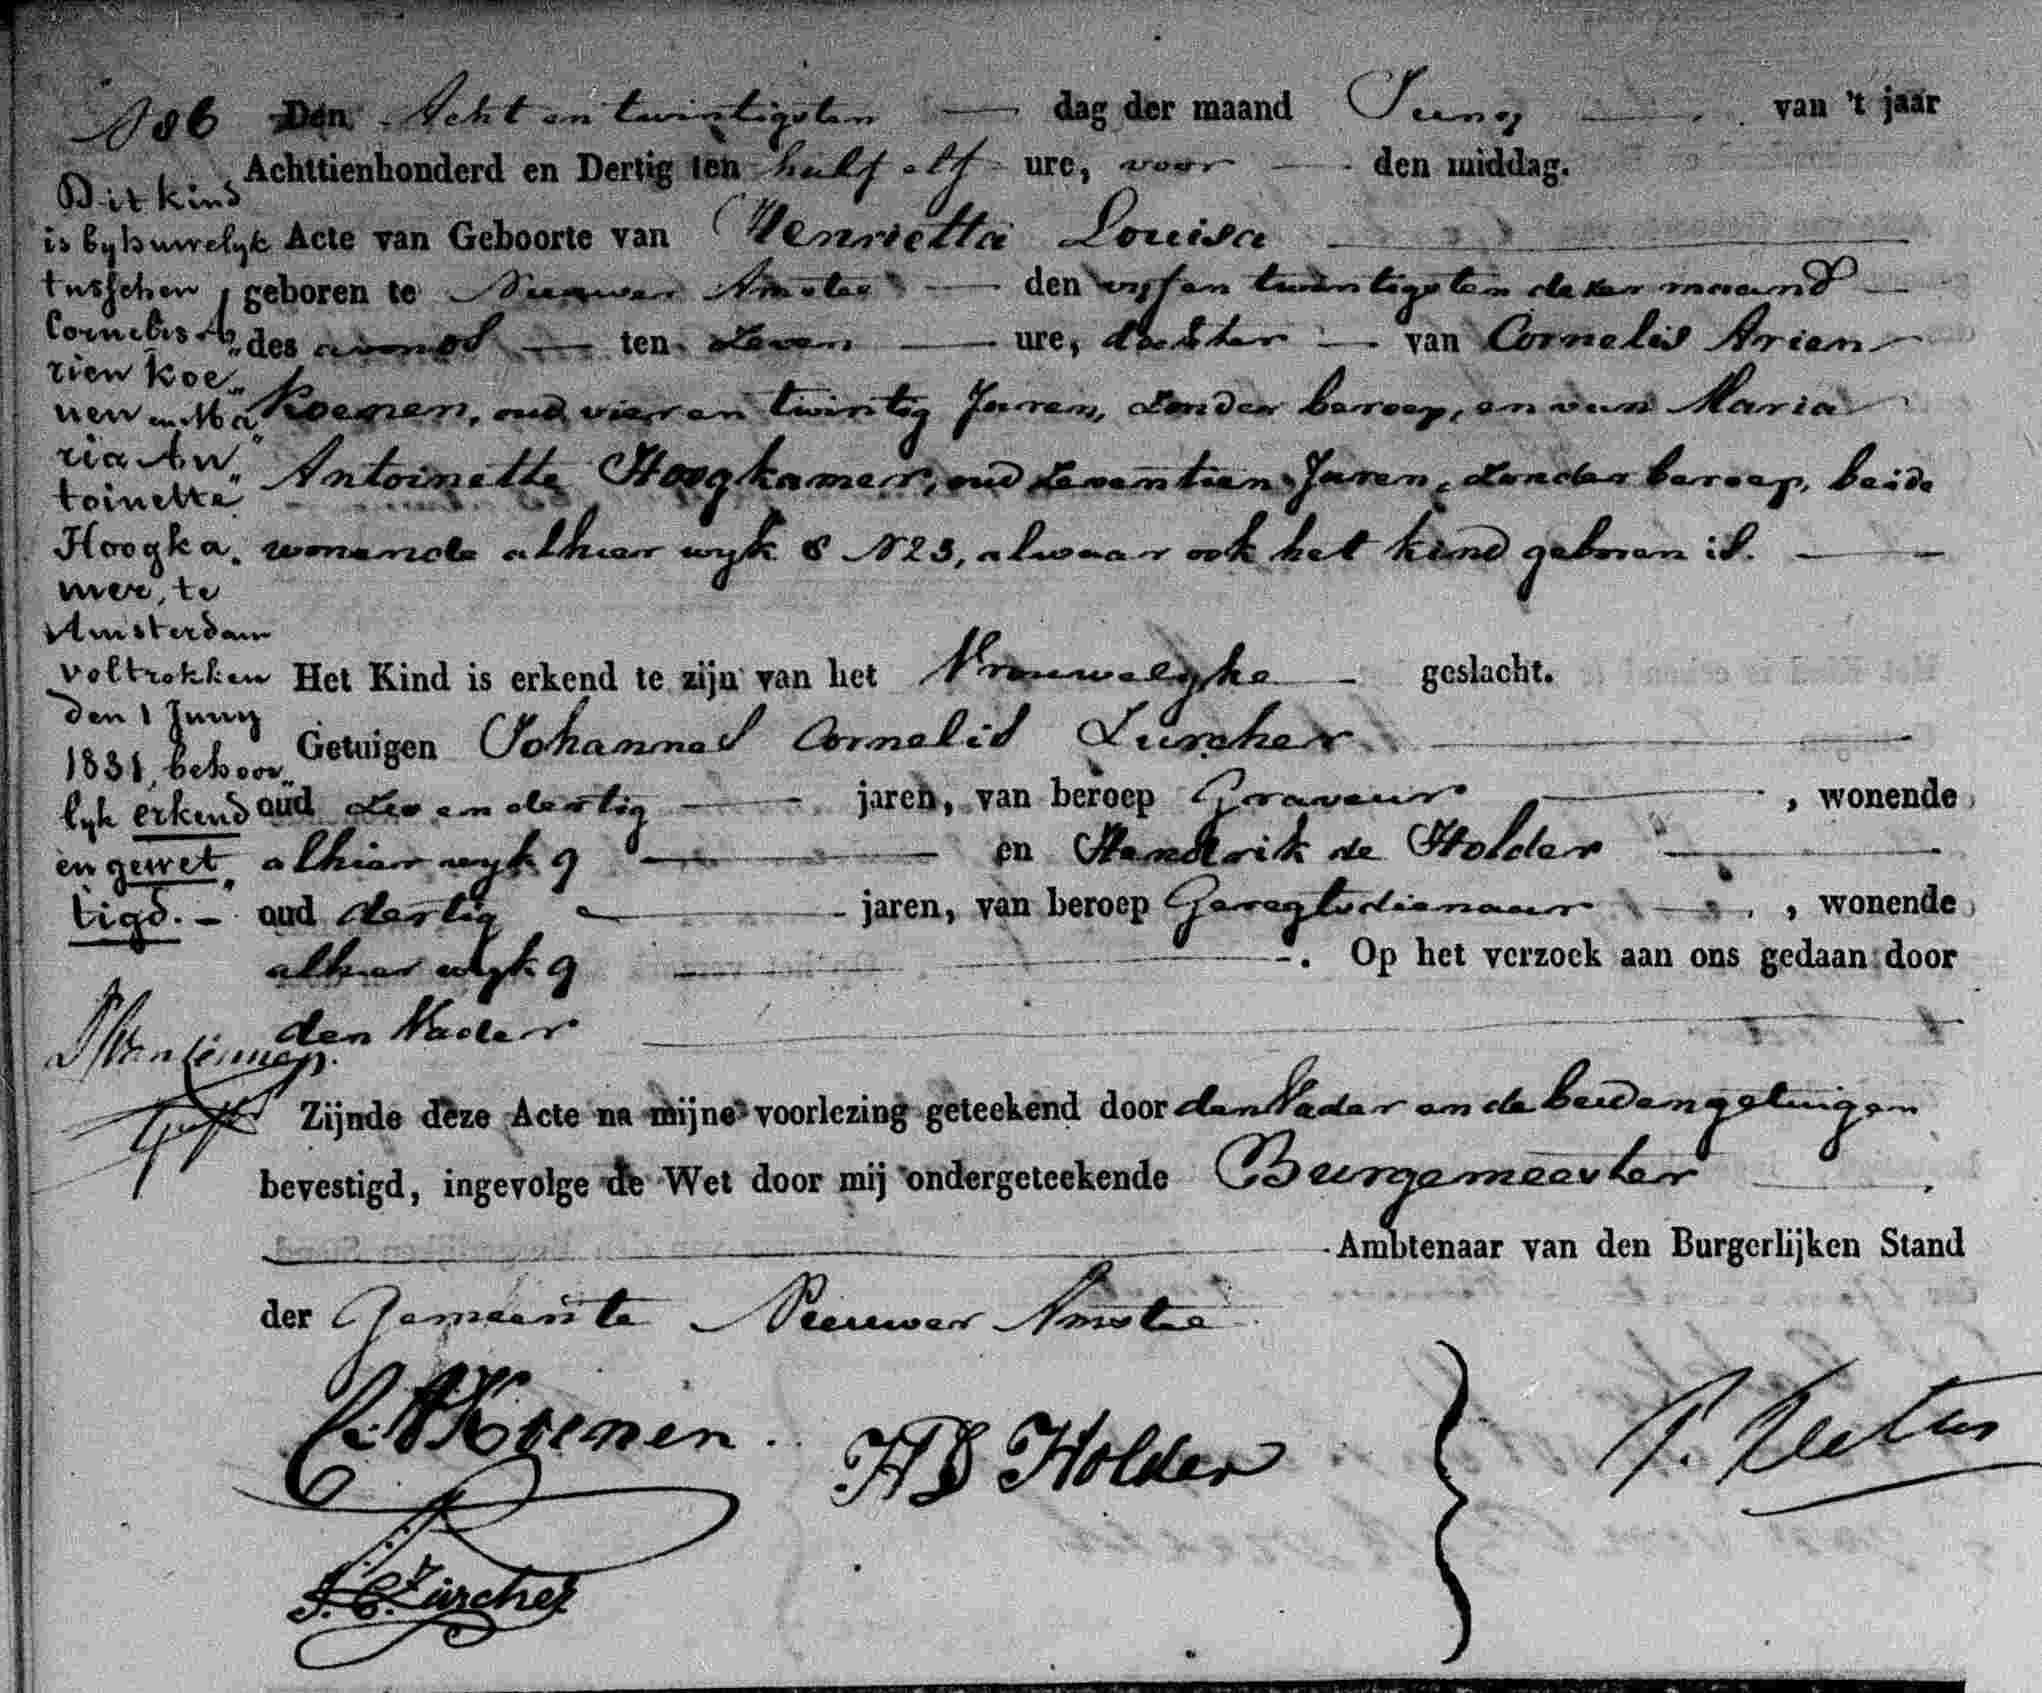 N 86
Den Acht en twintigsten dag der maand Juny van 't jaar
Achttienhonderd en Dertig ten half elf ure, voor den middag.
Acte van Geboorte van Henrietta Louisa
geboren te Nieuwer Amstel den vyf en twintigsten dezer maand
des avonds ten zeven ure, dochter van Cornelis Arien
Koenen, oud vier en twintig Jaren, zonder beroep, en van Maria
Antoinette Hoogkamer, oud zeventien Jaren, zonder beroep, beide
wonende alhier wyk 8 N 23, alwaar ook het kind geboren is.
Het Kind is erkend te zijn van het Vrouwelyke geslacht.
Getuigen Johannes Cornelis Zurcher
oud zes en dertig jaren, van beroep Graveur, wonende
alhier wyk 9 en Hendrik de Holder
oud dertig jaren, van beroep Geregtsdienaar, wonende
alhier wyk 9. Op het verzoek aan ons gedaan door
den Vader
Zijnde deze Acte na mijne voorlezing geteekend door den Vader en de beide getuigen
bevestigd, ingevolge de Wet door mij ondergeteekende Burgemeester
Ambtenaar van den Burgerlijken Stand
der Gemeente Nieuwer Amstel
C. A. Koenen.
HD Holder
J. C. Zürcher
Dit kind
is by huwelyk
tusschen
Cornelis A„
rien Koe„
nen en Ma„
ria An„
toinette
Hoogka„
mer, te
Amsterdam
voltrokken
den 1 Juny
1831, behoor„
lyk erkend
en gewet„
tigd. –